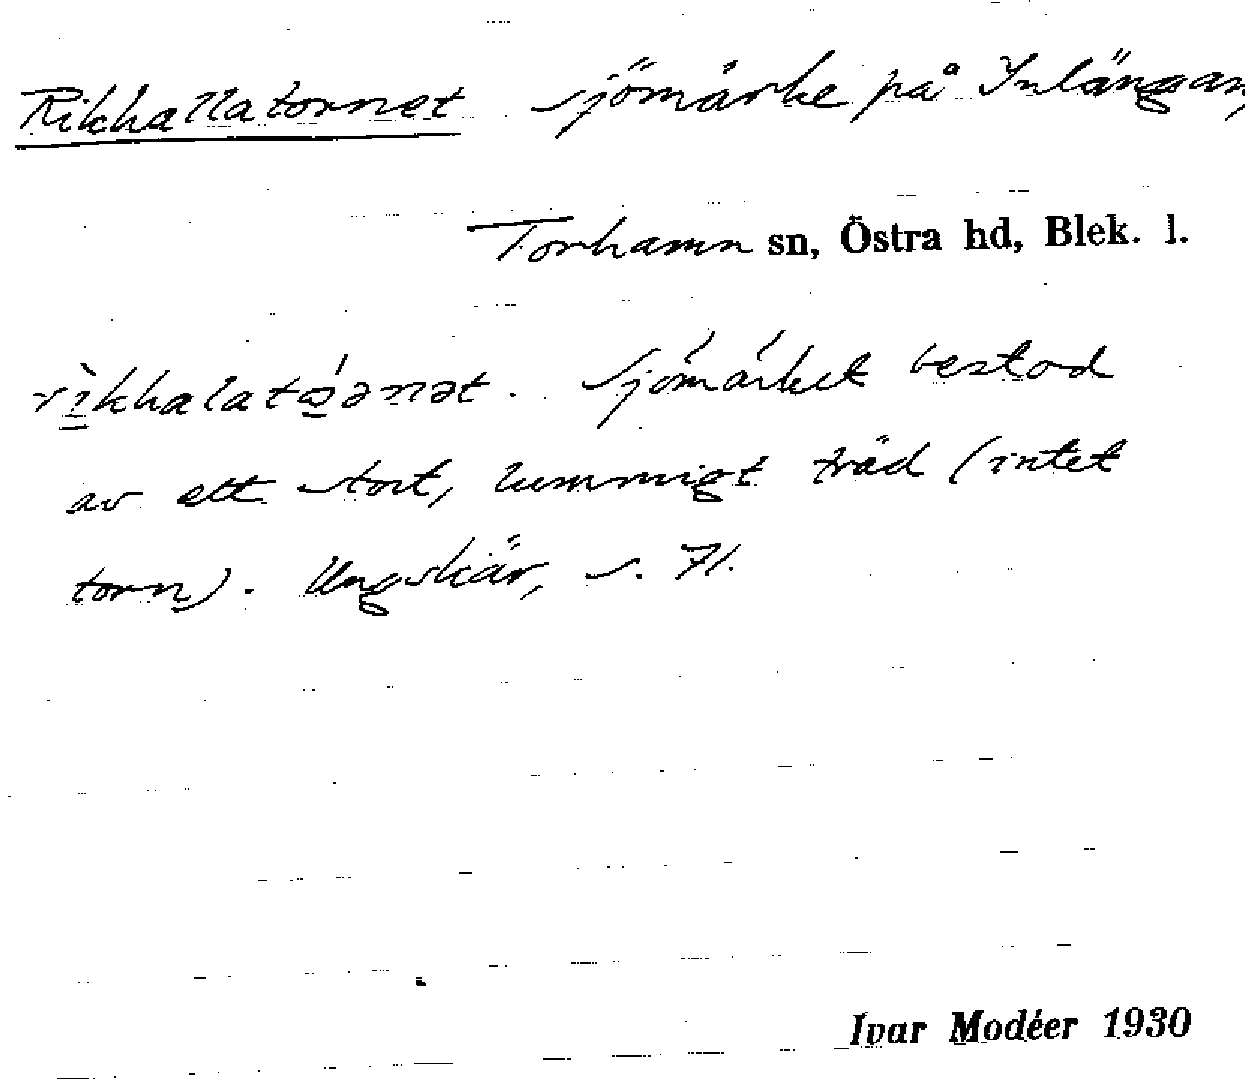 Rikhallatornet sjömärke på Inlängan,
Torhamn sn, Östra hd, Blek. l.
sjömärket bestod
av ett stort, lummigt träd (intet
torn). Ungskär, s. 71.
Ivar Modéer 1930